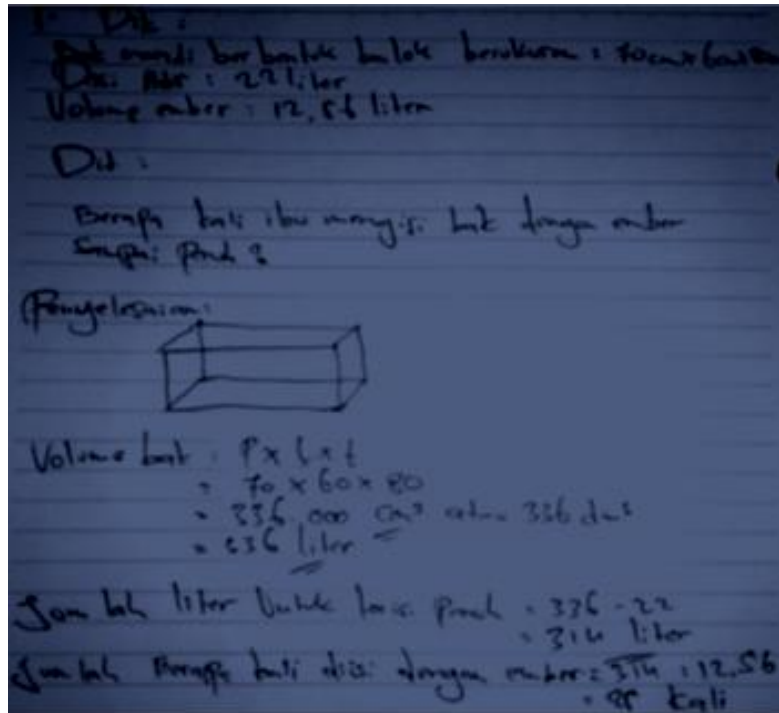 1. Dik :
Bak mandi berbentuk balok berukuran : 70cm x 60cm x 80
Diisi Air : 22 liter
Volume ember : 12,56 liter
Dit :
Berapa kali ibu mengisi bak dengan ember
Sampai Penuh ?
Penyelesaian :
Volume bak : P x l x t
= 70 x 60 x 80
= 336.000 cm³ atau 336 dm³
= 336 liter
Jumlah liter Untuk bak penuh = 336 - 22
= 314 liter
Jumlah Berapa kali diisi dengan ember = 314 : 12,56
= kali